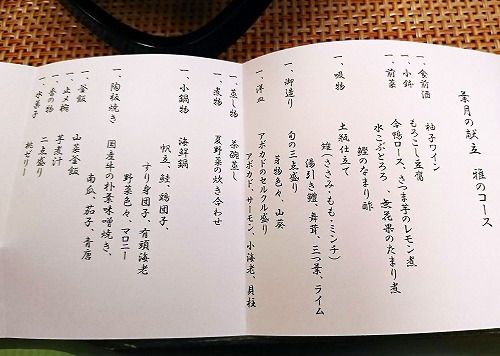 葉月の献立　雅のコース
一、食前酒　柚子ワイン
一、小鉢　もろこし豆腐
一、前菜　合鴨ロース、さつま芋のレモン煮
水こぶとろろ、無花果のたまり煮
鰹のなまり酢
一、吸物　土瓶仕立て
雉（ささみ・もも・ミンチ）
湯引き鱧、舞茸、三つ葉、ライム
一、御造り　旬の三点盛り
芽物色々、山葵
一、洋皿　アボカドのセルクル盛り
アボカド、サーモン、小海老、貝柱
一、蒸し物　茶碗蒸し
一、煮物　夏野菜の炊き合わせ
一、小鍋物　海鮮鍋
帆立、鮭、鶏団子、
すり身団子、有頭海老
野菜色々、マロニー
一、陶板焼き　国産牛の朴葉味噌焼き、
南瓜、茄子、青唐
一、釜飯　山菜釜飯
一、止メ椀　芋麦汁
一、香の物　二点盛り
一、水菓子　桃ゼリー